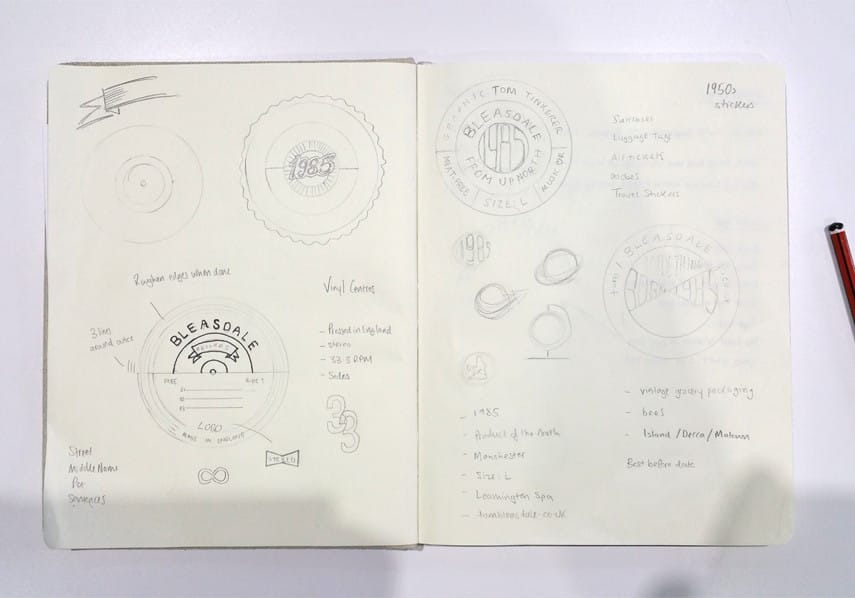 1985
Roughen edges when done
3 lines
around once
BLEASDALE
RECORDS
SIDE 1
LOGO
MADE IN ENGLAND
STEREO
33
Street
Middle Name
Pet
Sentences
Vinyl Centres
- Pressed in England
- Stereo
- 33.3 RPM
- Sides
GRAPHIC TOM TINKERER
BLEASDALE
1985
FROM UP NORTH
MEAT-FREE
SIZE: L
1950s
stickers
Suitcases
Luggage Tags
Air tickets
Travel Stickers
1985
BLEASDALE
- 1985
- Product of the North
- Manchester
- Size: L
- Leamington Spa
- tombleasdale.co.uk
- vintage grocery packaging
- bees
- Island / Decca / Motown
Best before date